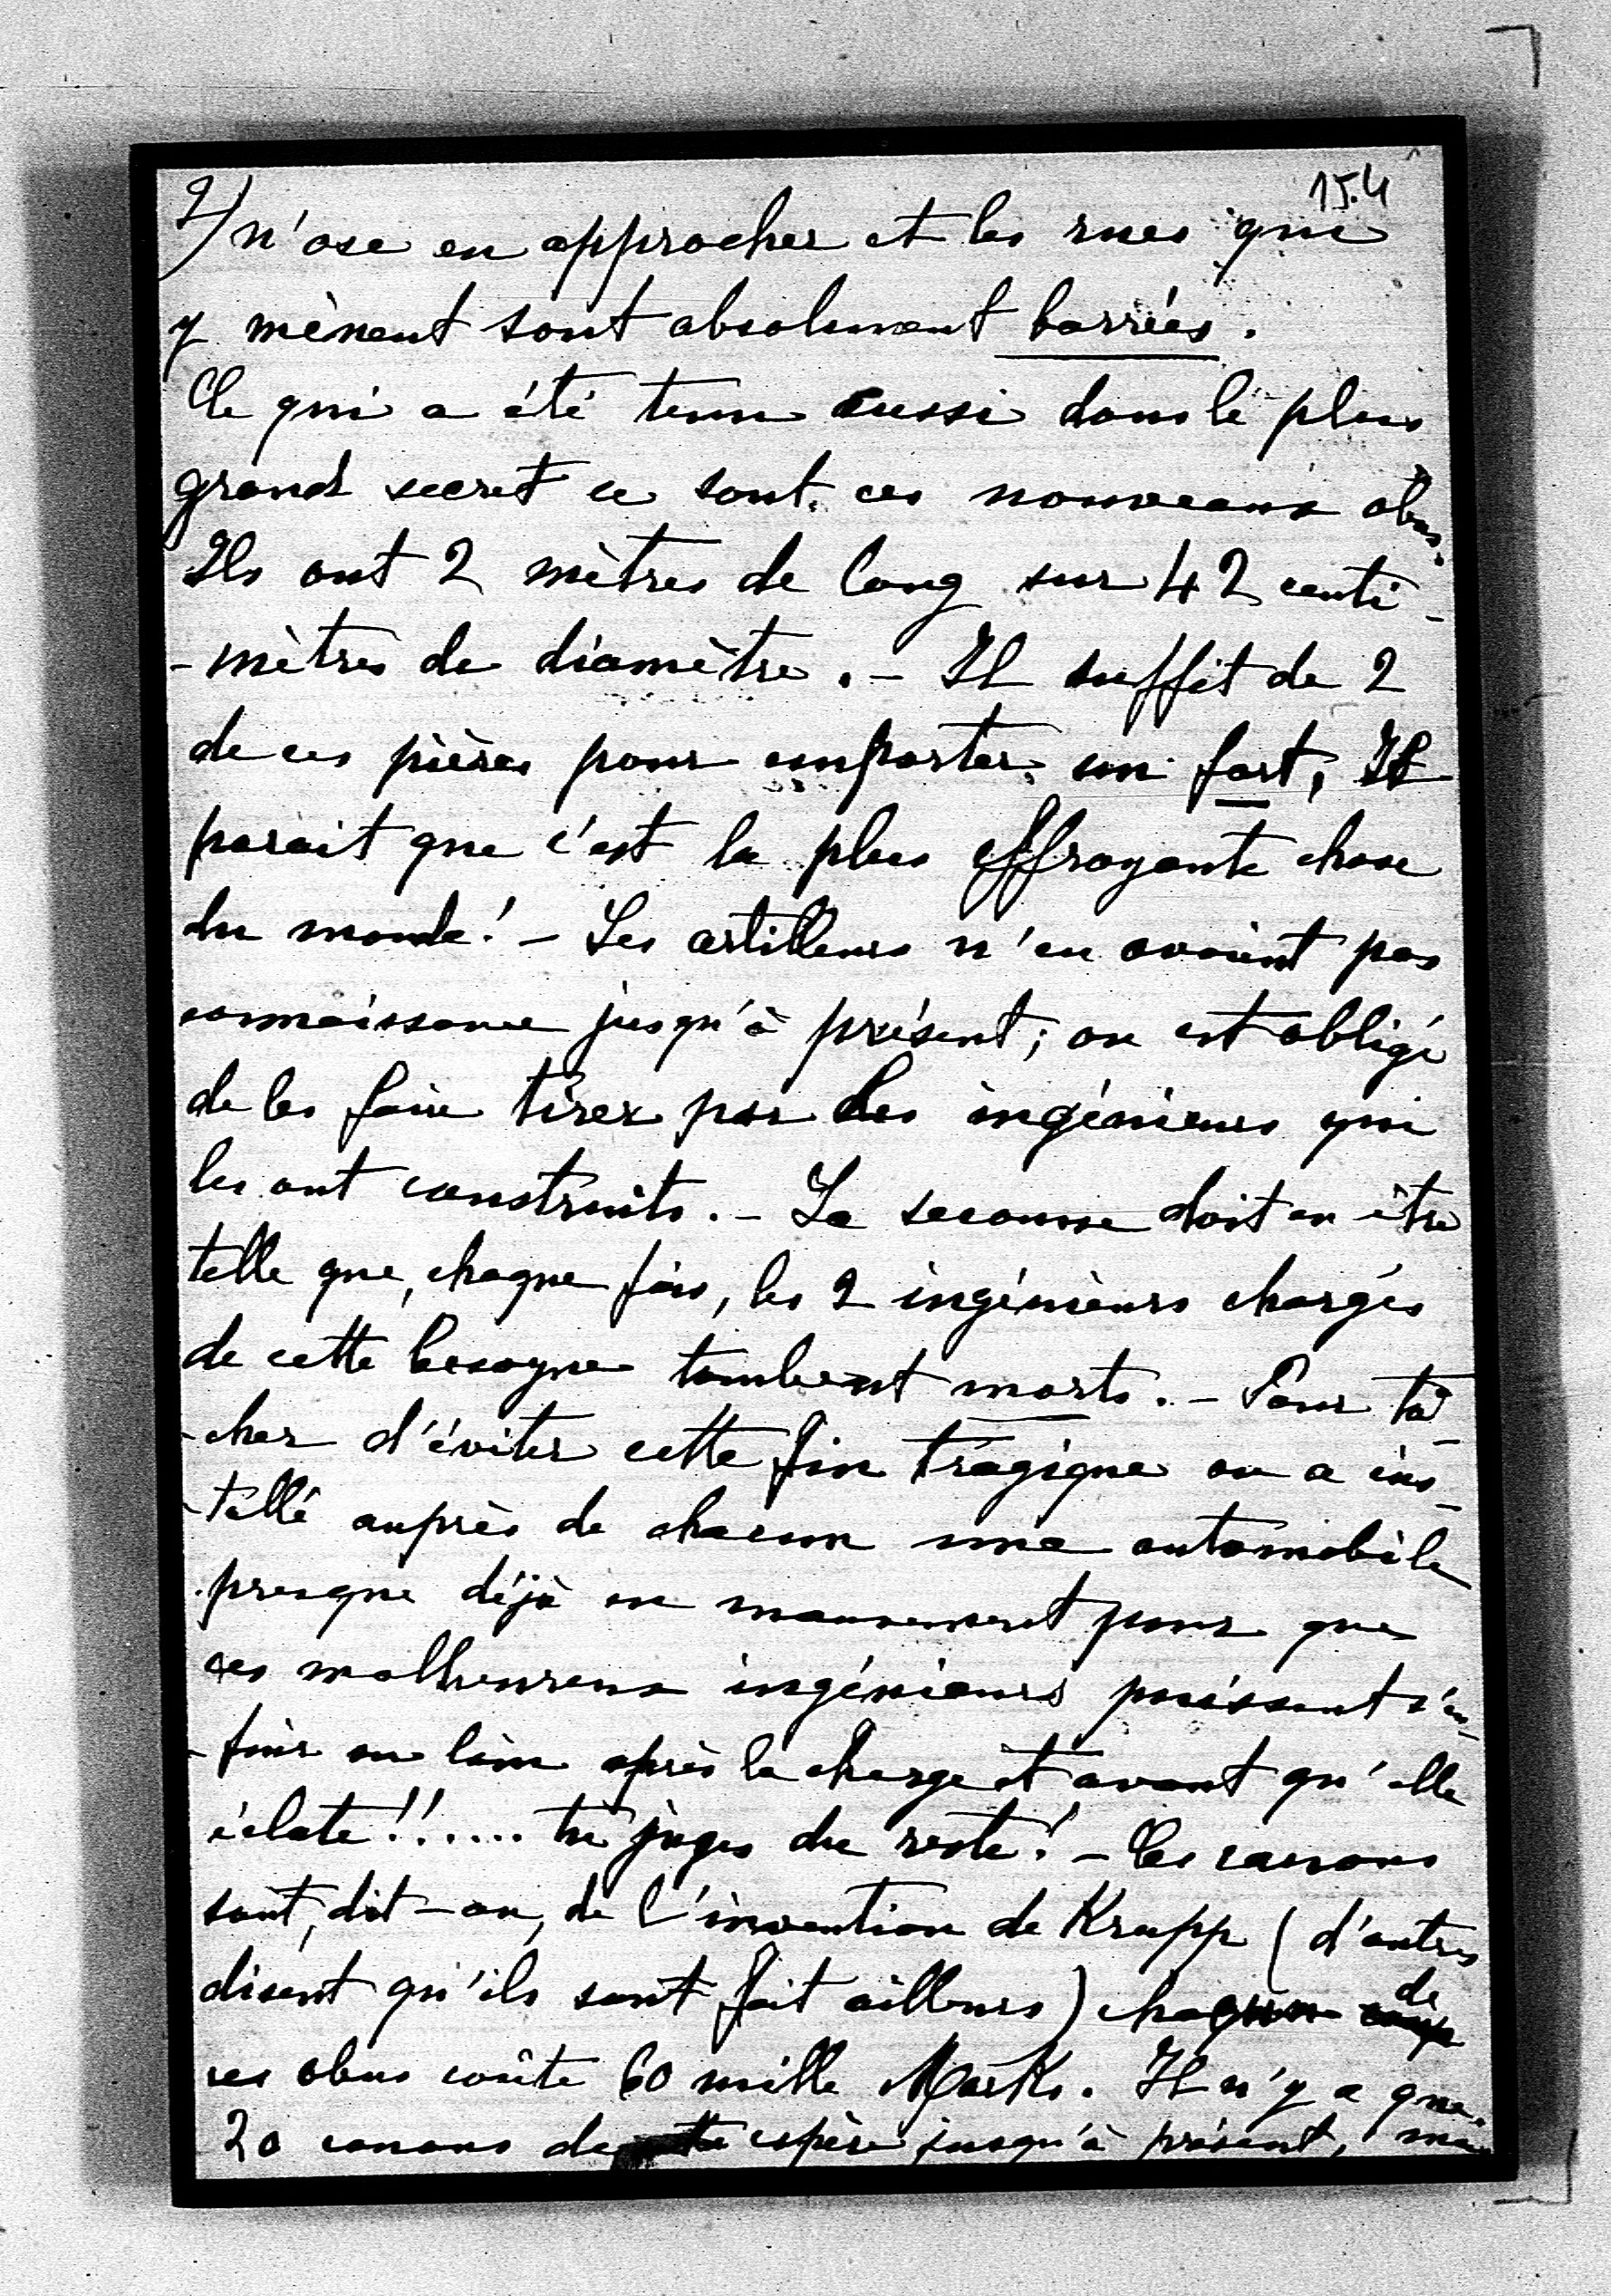 15.4
2) n'ose en approcher et les rues qui
y mènent sont absolument barrées.
Ce qui a été tenu aussi dans le plus
grand secret ce sont ces nouveaux obus.
Ils ont 2 mètres de long sur 42 centi-
-mètres de diamètre. - Il suffit de 2
de ces pièces pour emporter un fort, Il
parait que c'est la plus effroyante chose
du monde! - Les artilleurs n'en avaient pas
connaissance jusqu'à présent; on est obligé
de les faire tirer par les ingénieurs qui
les ont construits. - La secousse doit en être
telle que, chaque fois, les 2 ingénieurs chargés
de cette besogne tombent morts. - Pour tâ-
-cher d'éviter cette fin tragique on a ins-
-tallé auprès de chacun une automobile
presque déjà en mouvement pour que
ces malheureux ingénieurs puissent s'en-
-fuir au loin après la charge et avant qu'elle
éclate!!...... tu juges du reste! - Ces canons
sont, dit-on, de l'invention de Krupp (d'autres
disent qu'ils sont fait ailleurs) chacun de
ces obus coûte 60 mille Marks. Il n'y a que
20 canons de cette espèce jusqu'à présent,